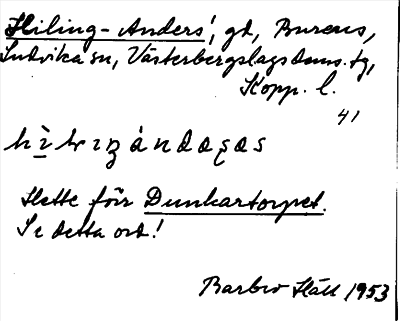 Hiling-Anders', gd, Burens,
Ludvika sn, Västerbergslags doms. tg,
Kopp. l.
41
Hette förr Dunkartorpet.
Se detta ord!
Barbro Häll 1953